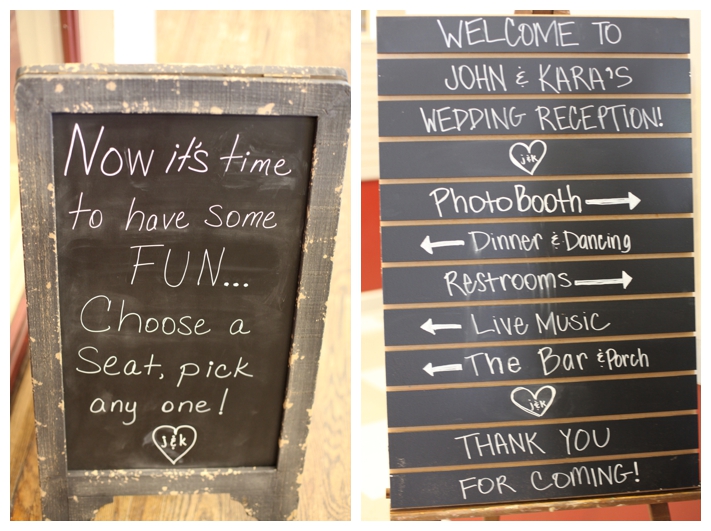 Now it's time
to have some
FUN...
Choose a
Seat, pick
any one!
j&k
WELCOME TO
JOHN & KARA'S
WEDDING RECEPTION!
j&k
PhotoBooth →
← Dinner & Dancing
Restrooms →
← Live Music
← The Bar & Porch
j&k
THANK YOU
FOR COMING!